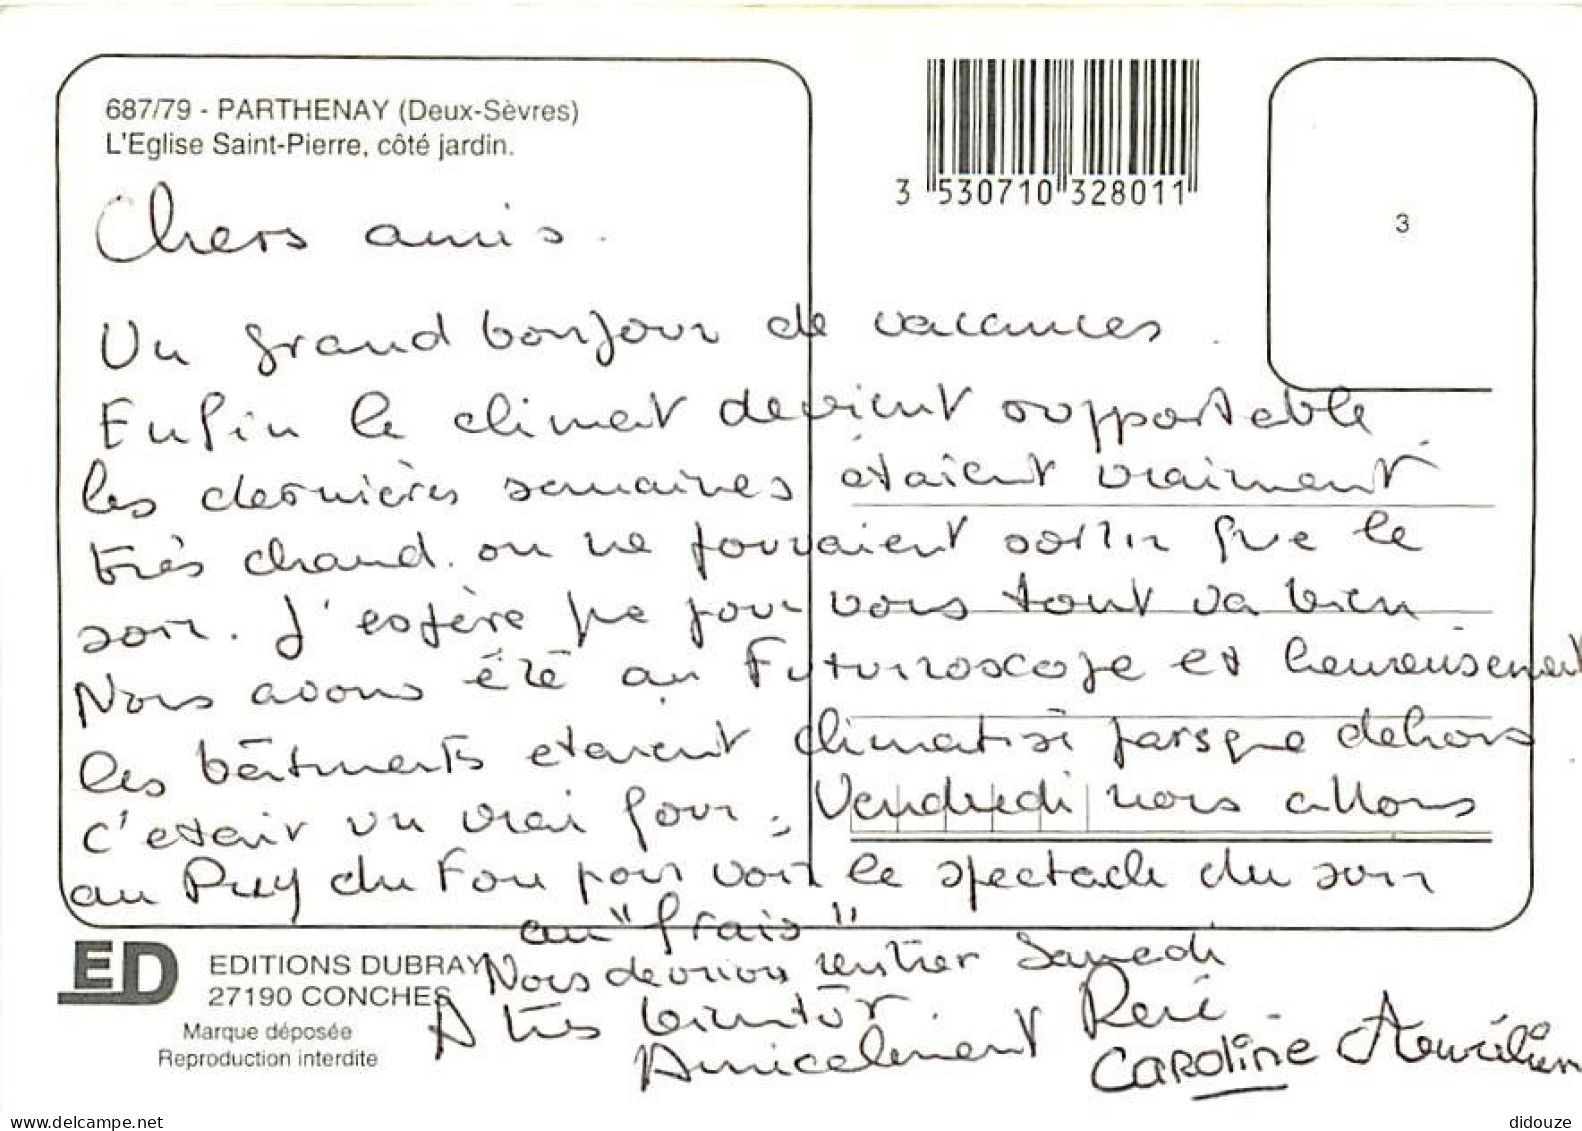 687/79 - PARTHENAY (Deux-Sèvres)
L'Eglise Saint-Pierre, côté jardin.
3 530710 328011
3
Chers amis.
Un grand bonjour de vacances.
Enfin le climat devient supportable
les dernières semaines étaient vraiment
très chaud. on ne pouvaient sortir que le
soir. J'espère que pour vous tout va bien
Nous avons été au Futuroscope et heureusement
les bâtiments etaient climatisé parsque dehors
c'etait un vrai four. Vendredi nous allons
au Puy du Fou pour voir le spectacle du soir
au "frais"
Nous devrions rentrer Samedi
A très bientôt René
Amicalement CAROLINE Aurélien
ED
EDITIONS DUBRAY
27190 CONCHES
Marque déposée
Reproduction interdite
www.delcampe.net
didouze